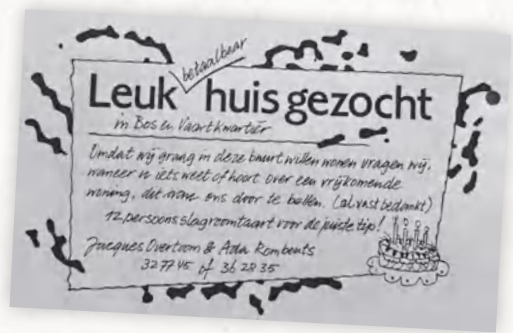 betaalbaar
Leuk huis gezocht
in Bos en Vaartkwartier
Omdat wij graag in deze buurt willen wonen vragen wij,
wanneer u iets weet of hoort over een vrijkomende
woning, dit aan ons door te bellen. (al vast bedankt)
12 persoons slagroomtaart voor de juiste tip!
Jacques Overtoom & Ada Rombouts
32 77 45 of 36 28 35